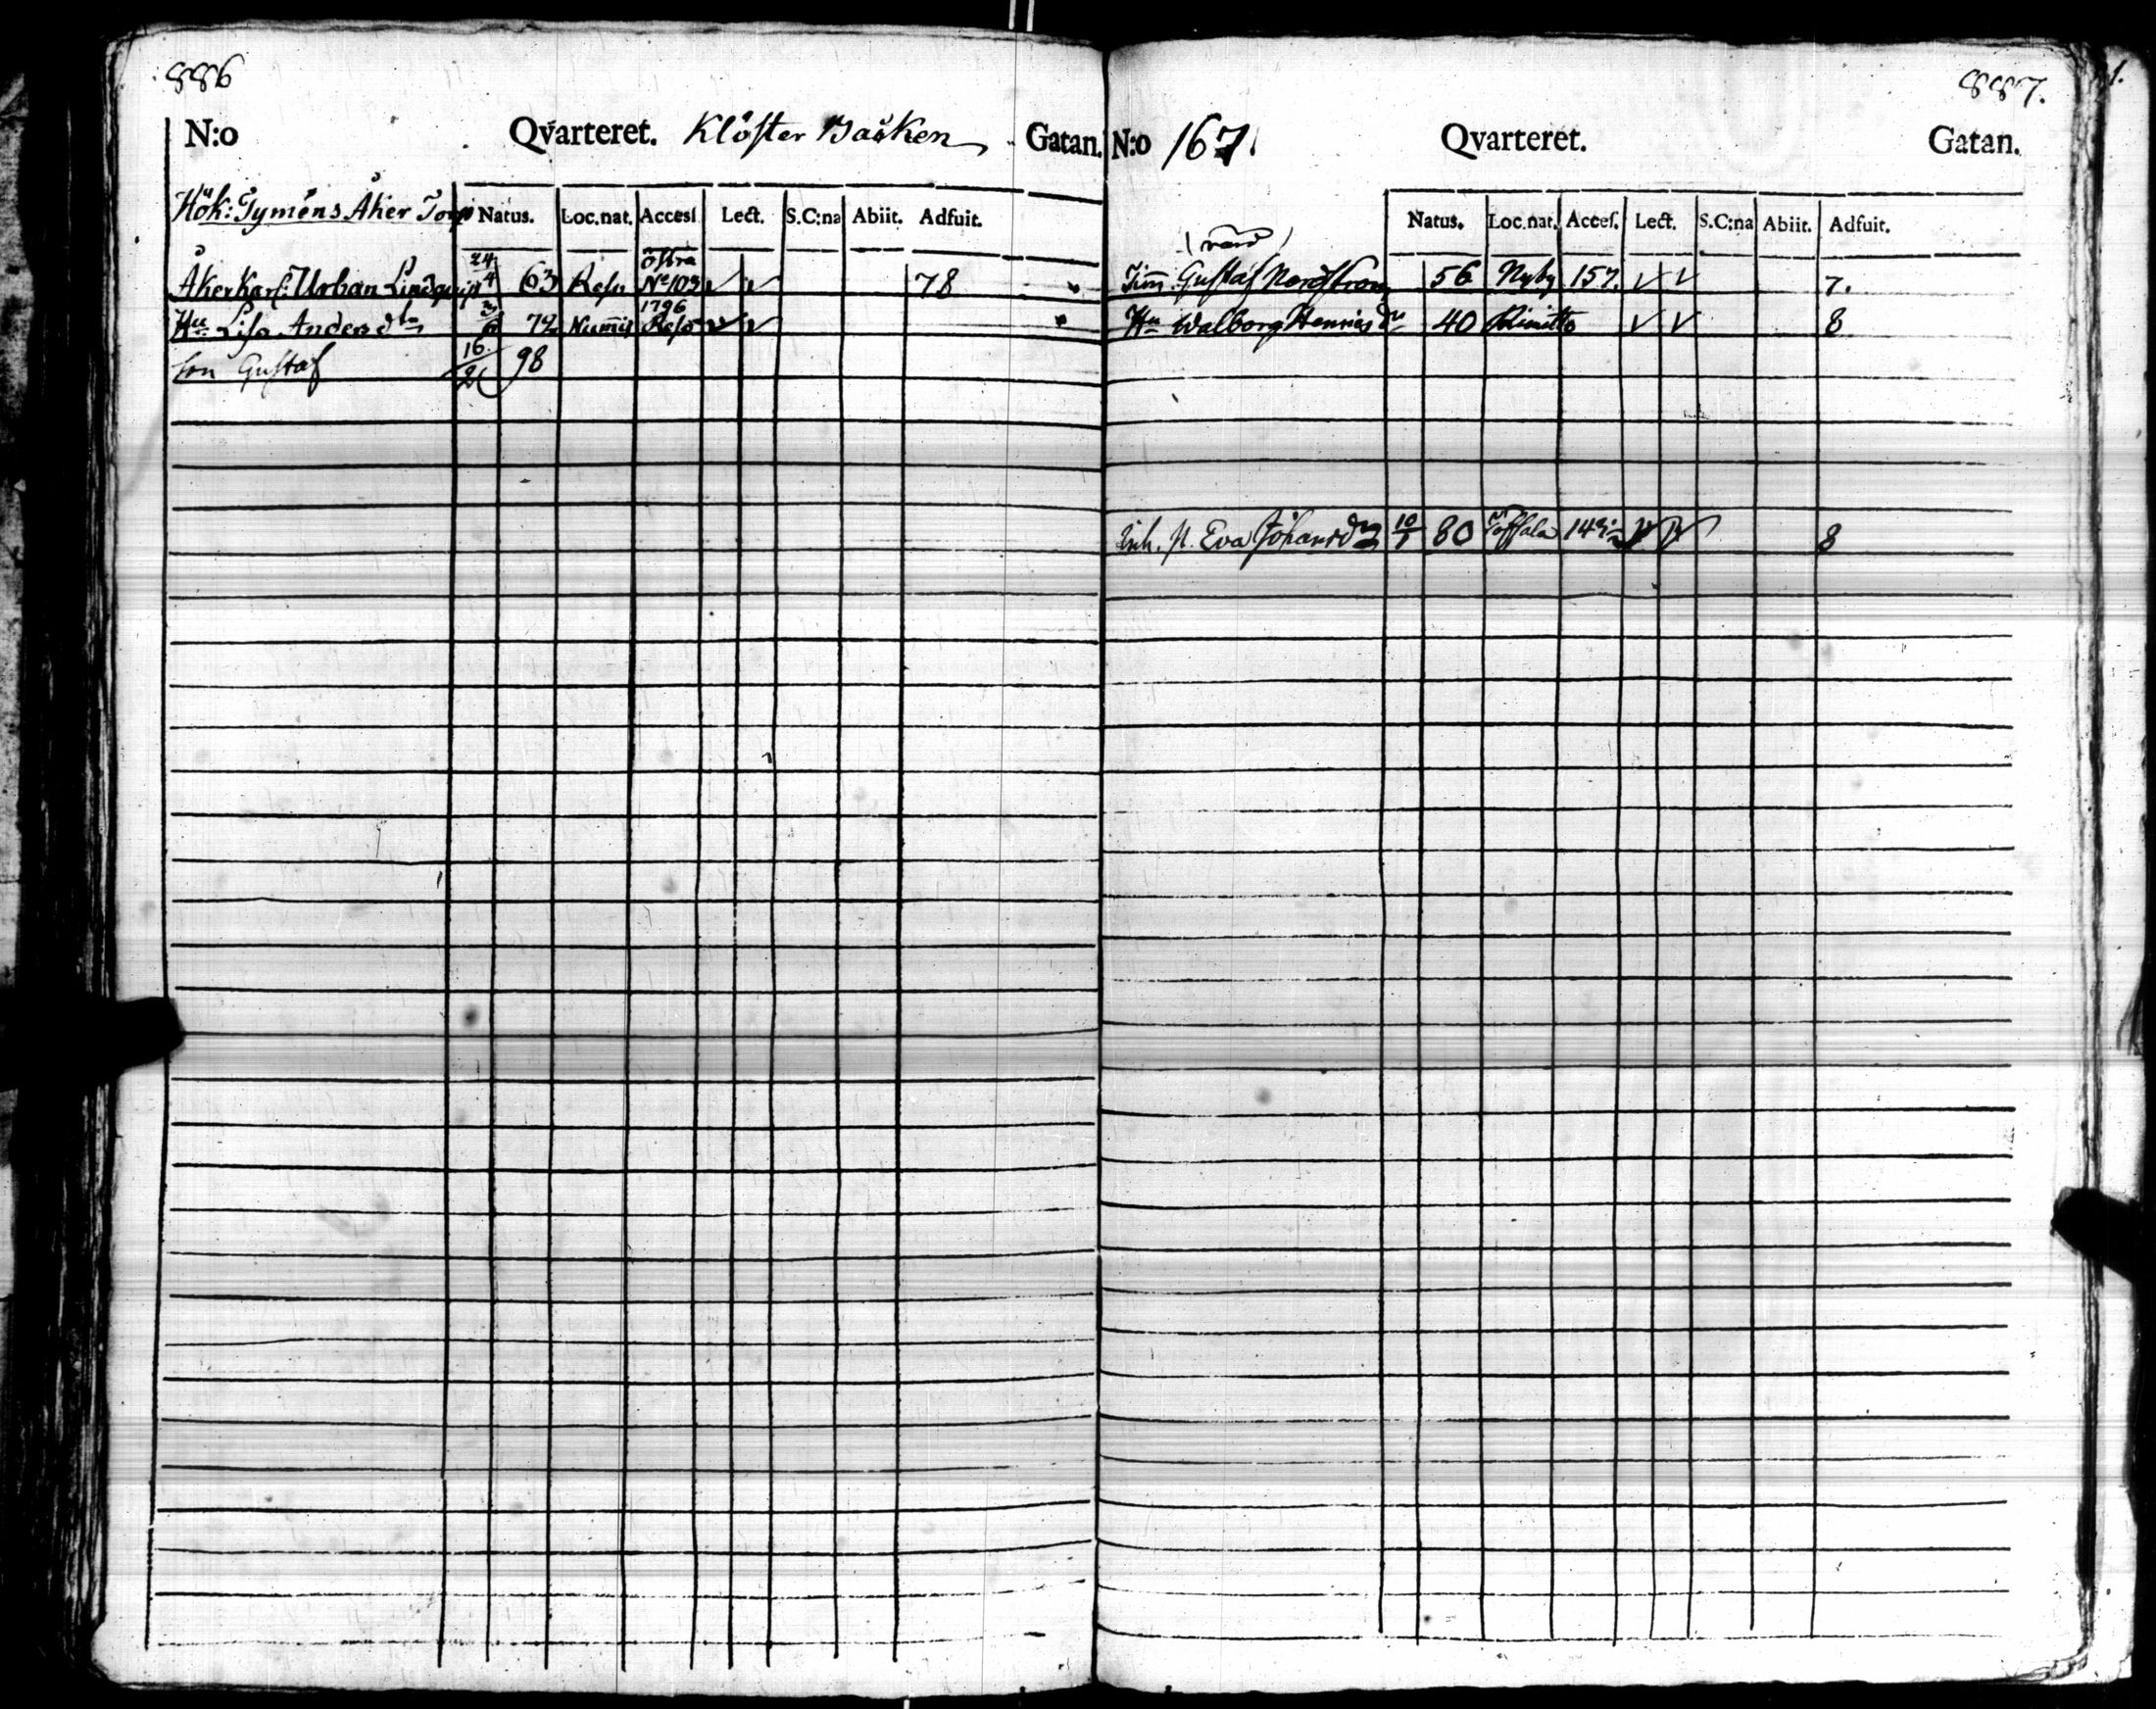 886
N:o Qvarteret. Klöster Backen Gatan.
Hök: Tymens Åker Torp Natus. Loc.nat. Accesſ Lect. S.C:na Abiit. Adfuit.
Åker Karl: Urban Lindqvist 24/4 63 Reso Öfbra No 103 78
Hu Lisa Andersdr 3/6 72 Numis 1796 Reso
Son Gustaf 16/2 98
887.
N:o 167. Qvarteret. Gatan.
Natus. Loc.nat. Acceſ. Lect. S.C:na Abiit. Adfuit.
Tim Gustaf Nordstrom 56 Nyby 157. 7.
Hu Walborg Henricsdr 40 Kimitto 8
Inh. P. Eva Johansdr 10/5 80 Töffsala 8